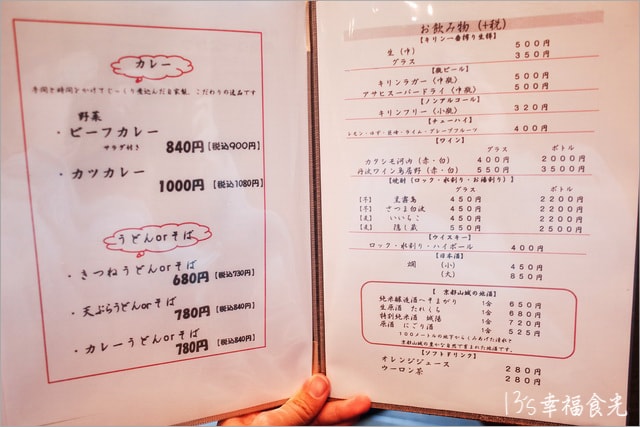 カレー
手間と時間をかけてじっくり煮込んだ自家製、こだわりの逸品です
野菜
・ビーフカレー
サラダ付き 840円【税込900円】
・カツカレー
1000円【税込1080円】
うどんorそば
・きつねうどんorそば
680円【税込730円】
・天ぷらうどんorそば
780円【税込840円】
・カレーうどんorそば
780円【税込840円】
お飲み物(+税)
【キリン一番搾り生樽】
生(中) 500円
グラス 350円
【瓶ビール】
キリンラガー(中瓶) 500円
アサヒスーパードライ(中瓶) 500円
【ノンアルコール】
キリンフリー(小瓶) 320円
【チューハイ】
レモン・ゆず・巨峰・ライム・グレープフルーツ 400円
【ワイン】
グラス ボトル
カタシモ河内(赤・白) 400円 2000円
丹波ワイン鳥居野(赤・白) 550円 3500円
【焼酎(ロック・水割り・お湯割り)】
グラス ボトル
【芋】 黒霧島 450円 2200円
【芋】 さつま白波 450円 2200円
【麦】 いいちこ 450円 2200円
【麦】 隠し蔵 550円 2500円
【ウイスキー】
ロック・水割り・ハイボール 400円
【日本酒】
燗 (小) 450円
(大) 850円
【京都山城の地酒】
純米醸造酒へそまがり 1合 650円
生原酒 たれくち 1合 680円
特別純米酒 城陽 1合 720円
原酒 にごり酒 1合 525円
100メートルの地下からくみあげた清水と
京都山城の豊かな自然で育まれた地酒です。
【ソフトドリンク】
オレンジジュース 280円
ウーロン茶 280円
13's幸福食光